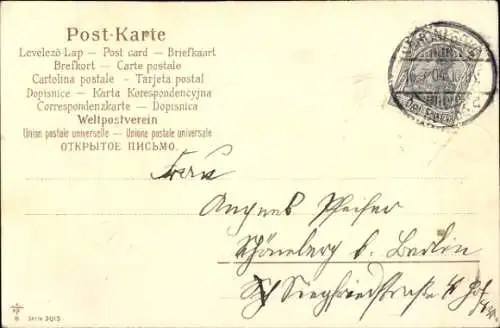 Post-Karte
Levelező-Lap — Post card — Briefkaart
Brefkort — Carte postale
Cartolina postale — Tarjeta postal
Dopisnice — Karta Korespondencyjna
Correspondenzkarte — Dopisnica
Weltpostverein
Union postale universelle — Unione postale universale
ОТКРЫТОЕ ПИСЬМО.
Frau
Agnes Pfeifer
Schöneberg b. Berlin
Siegfriedstraße
Serie